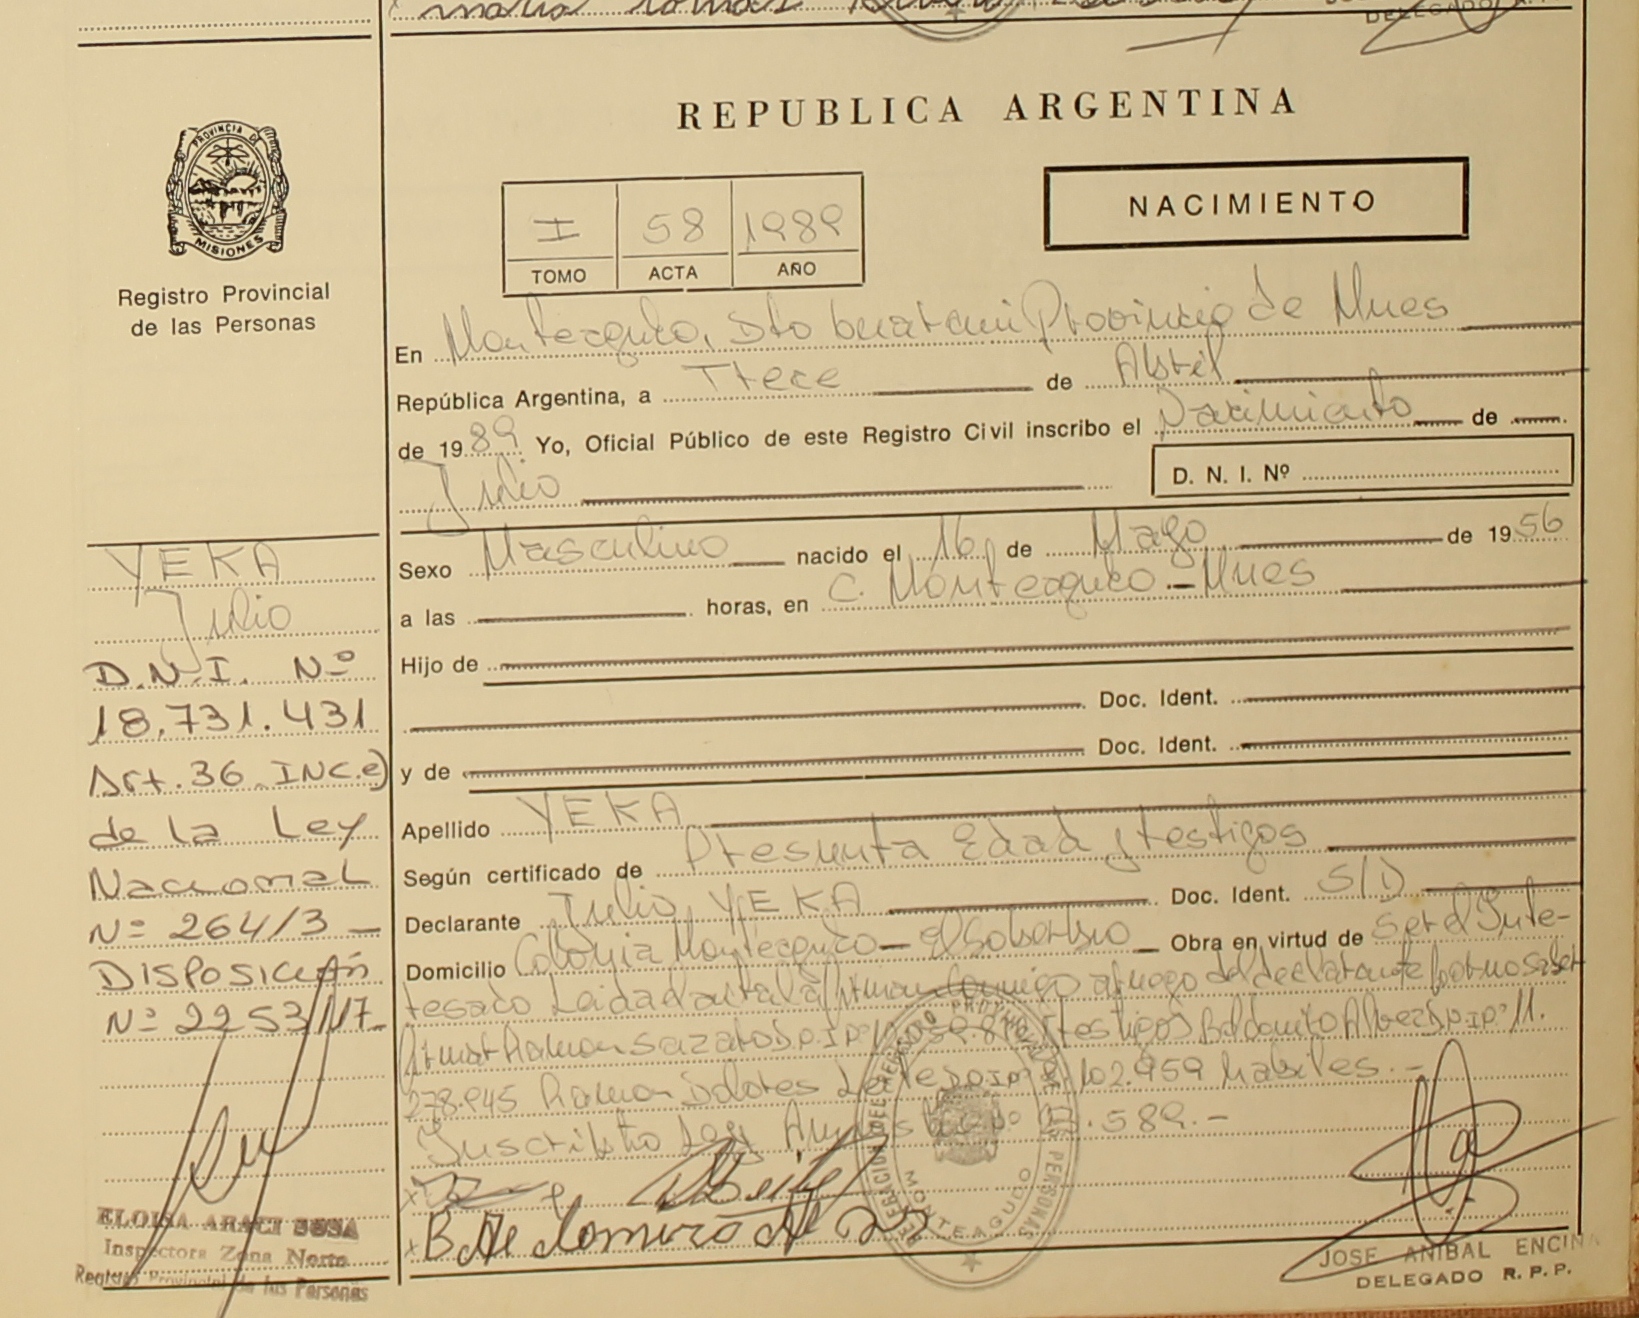 DELEGADO
REPUBLICA ARGENTINA
PROVINCIA DE
MISIONES
Registro Provincial
de las Personas
NACIMIENTO
I 58 1989
TOMO ACTA AÑO
En Monteagudo, Dto Guarani Provincia de Mnes
República Argentina, a Trece de Abril
de 1989 Yo, Oficial Público de este Registro Civil inscribo el Nacimiento de
Julio
D. N. I. Nº
Sexo Masculino nacido el 16 de Mayo de 1956
a las horas, en C. Monteagudo - Mnes
Hijo de
Doc. Ident.
y de Doc. Ident.
Apellido YEKA
Según certificado de Presunta Edad y testigos
Declarante Julio YEKA Doc. Ident. S/D
Domicilio Colonia Monteagudo - El Soberbio Obra en virtud de Ser el Inte-
resado Leida el acta la firman conmigo a ruego del declarante por no saber
firmar Ramon testigos D.I.Nº 11.
278.945 Ramon Dolores 102.959 habiles.-
Inscribto Ley .589.-
YEKA
Julio
D.N.I. Nº
18.731.431
Art. 36 INC.e)
de la Ley
Nacional
Nº 264/3 -
DISPOSICIÓN
Nº 2253/17
DELEGACION DEL REGISTRO PROVINCIAL DE LAS PERSONAS
MONTEAGUDO
ELOISA ARACI SOSA
Inspectora Zona Norte
Registro Provincial de las Personas
JOSE ANIBAL ENCINA
DELEGADO R. P. P.